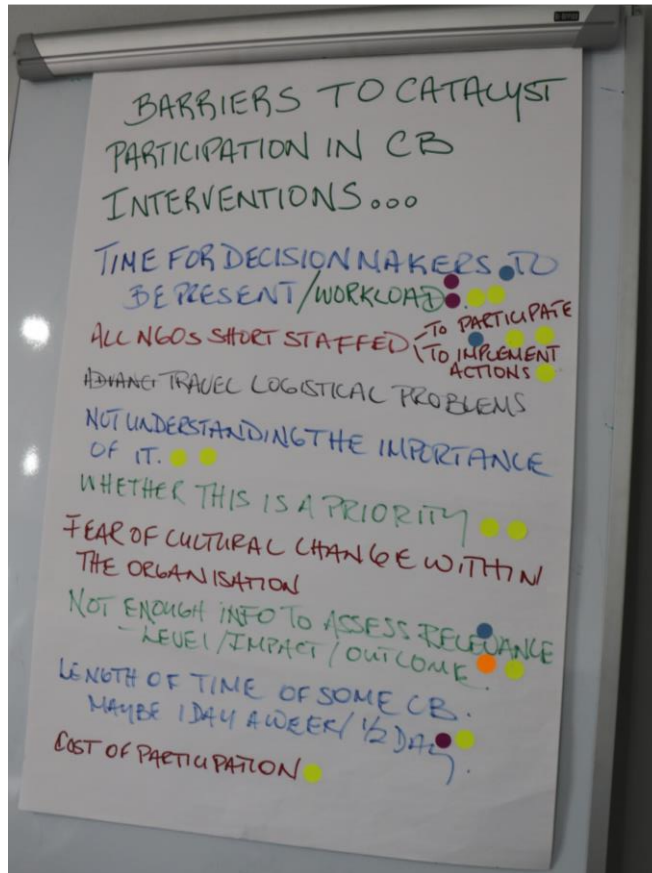 BARRIERS TO CATALYST
PARTICIPATION IN CB
INTERVENTIONS...
TIME FOR DECISION MAKERS TO
BE PRESENT/WORKLOAD.
ALL NGOS SHORT STAFFED
TO PARTICIPATE
TO IMPLEMENT
ACTIONS
TRAVEL LOGISTICAL PROBLEMS
NOT UNDERSTANDING THE IMPORTANCE
OF IT.
WHETHER THIS IS A PRIORITY
FEAR OF CULTURAL CHANGE WITHIN
THE ORGANISATION
NOT ENOUGH INFO TO ASSESS RELEVANCE
- LEVEL/IMPACT/OUTCOME.
LENGTH OF TIME OF SOME CB.
MAYBE 1 DAY A WEEK/ 1/2 DAY.
COST OF PARTICIPATION